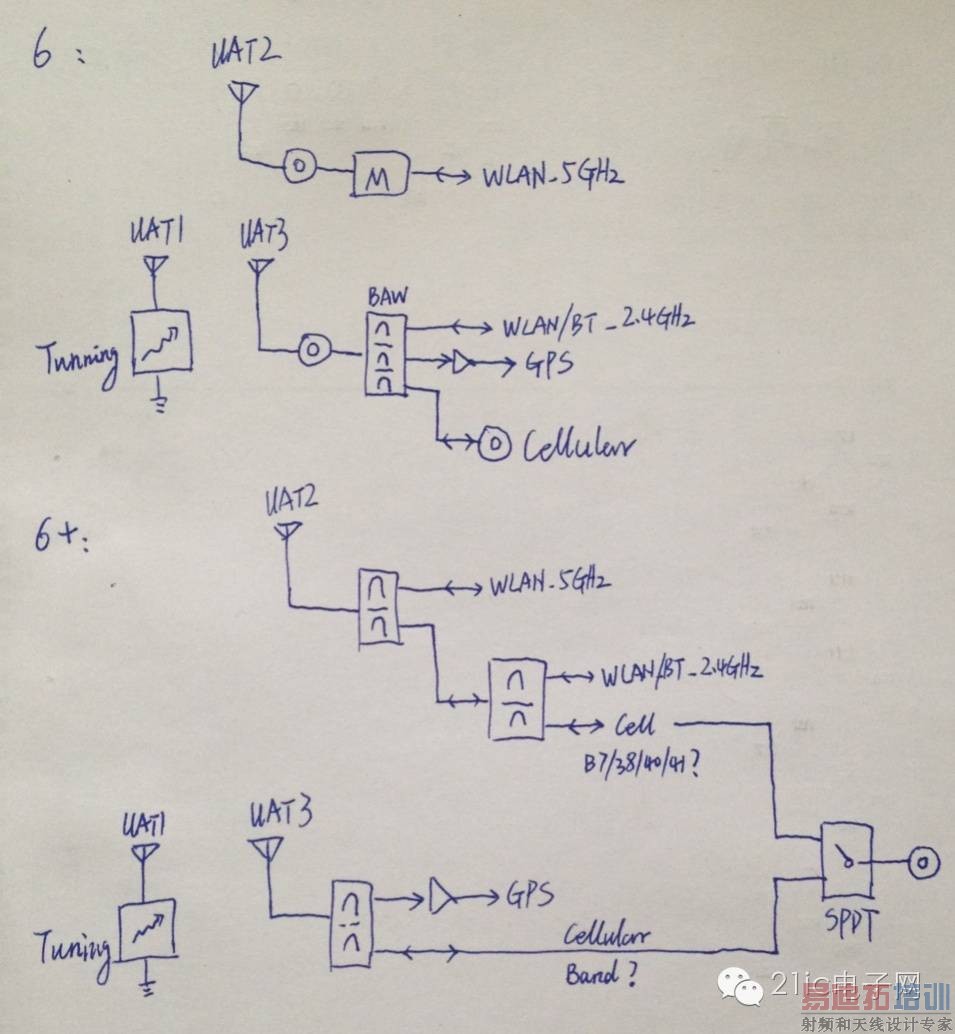 6:
UAT2
M
WLAN-5GHz
UAT1
UAT3
BAW
WLAN/BT-2.4GHz
Tunning
GPS
Cellularr
6+:
UAT2
WLAN-5GHz
WLAN/BT-2.4GHz
Cell
B7/38/40/41?
UAT1
UAT3
GPS
SPDT
Tuning
Cellularr
Band?
21ic电子网
易迪拓培训
射频和天线设计专家